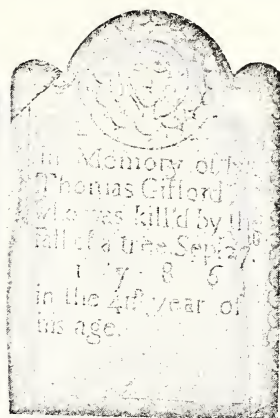 In Memory of
Thomas Gifford
who was kill'd by the
fall of a tree Sept 27th
1 7 8 6
in the 4th year of
his age.